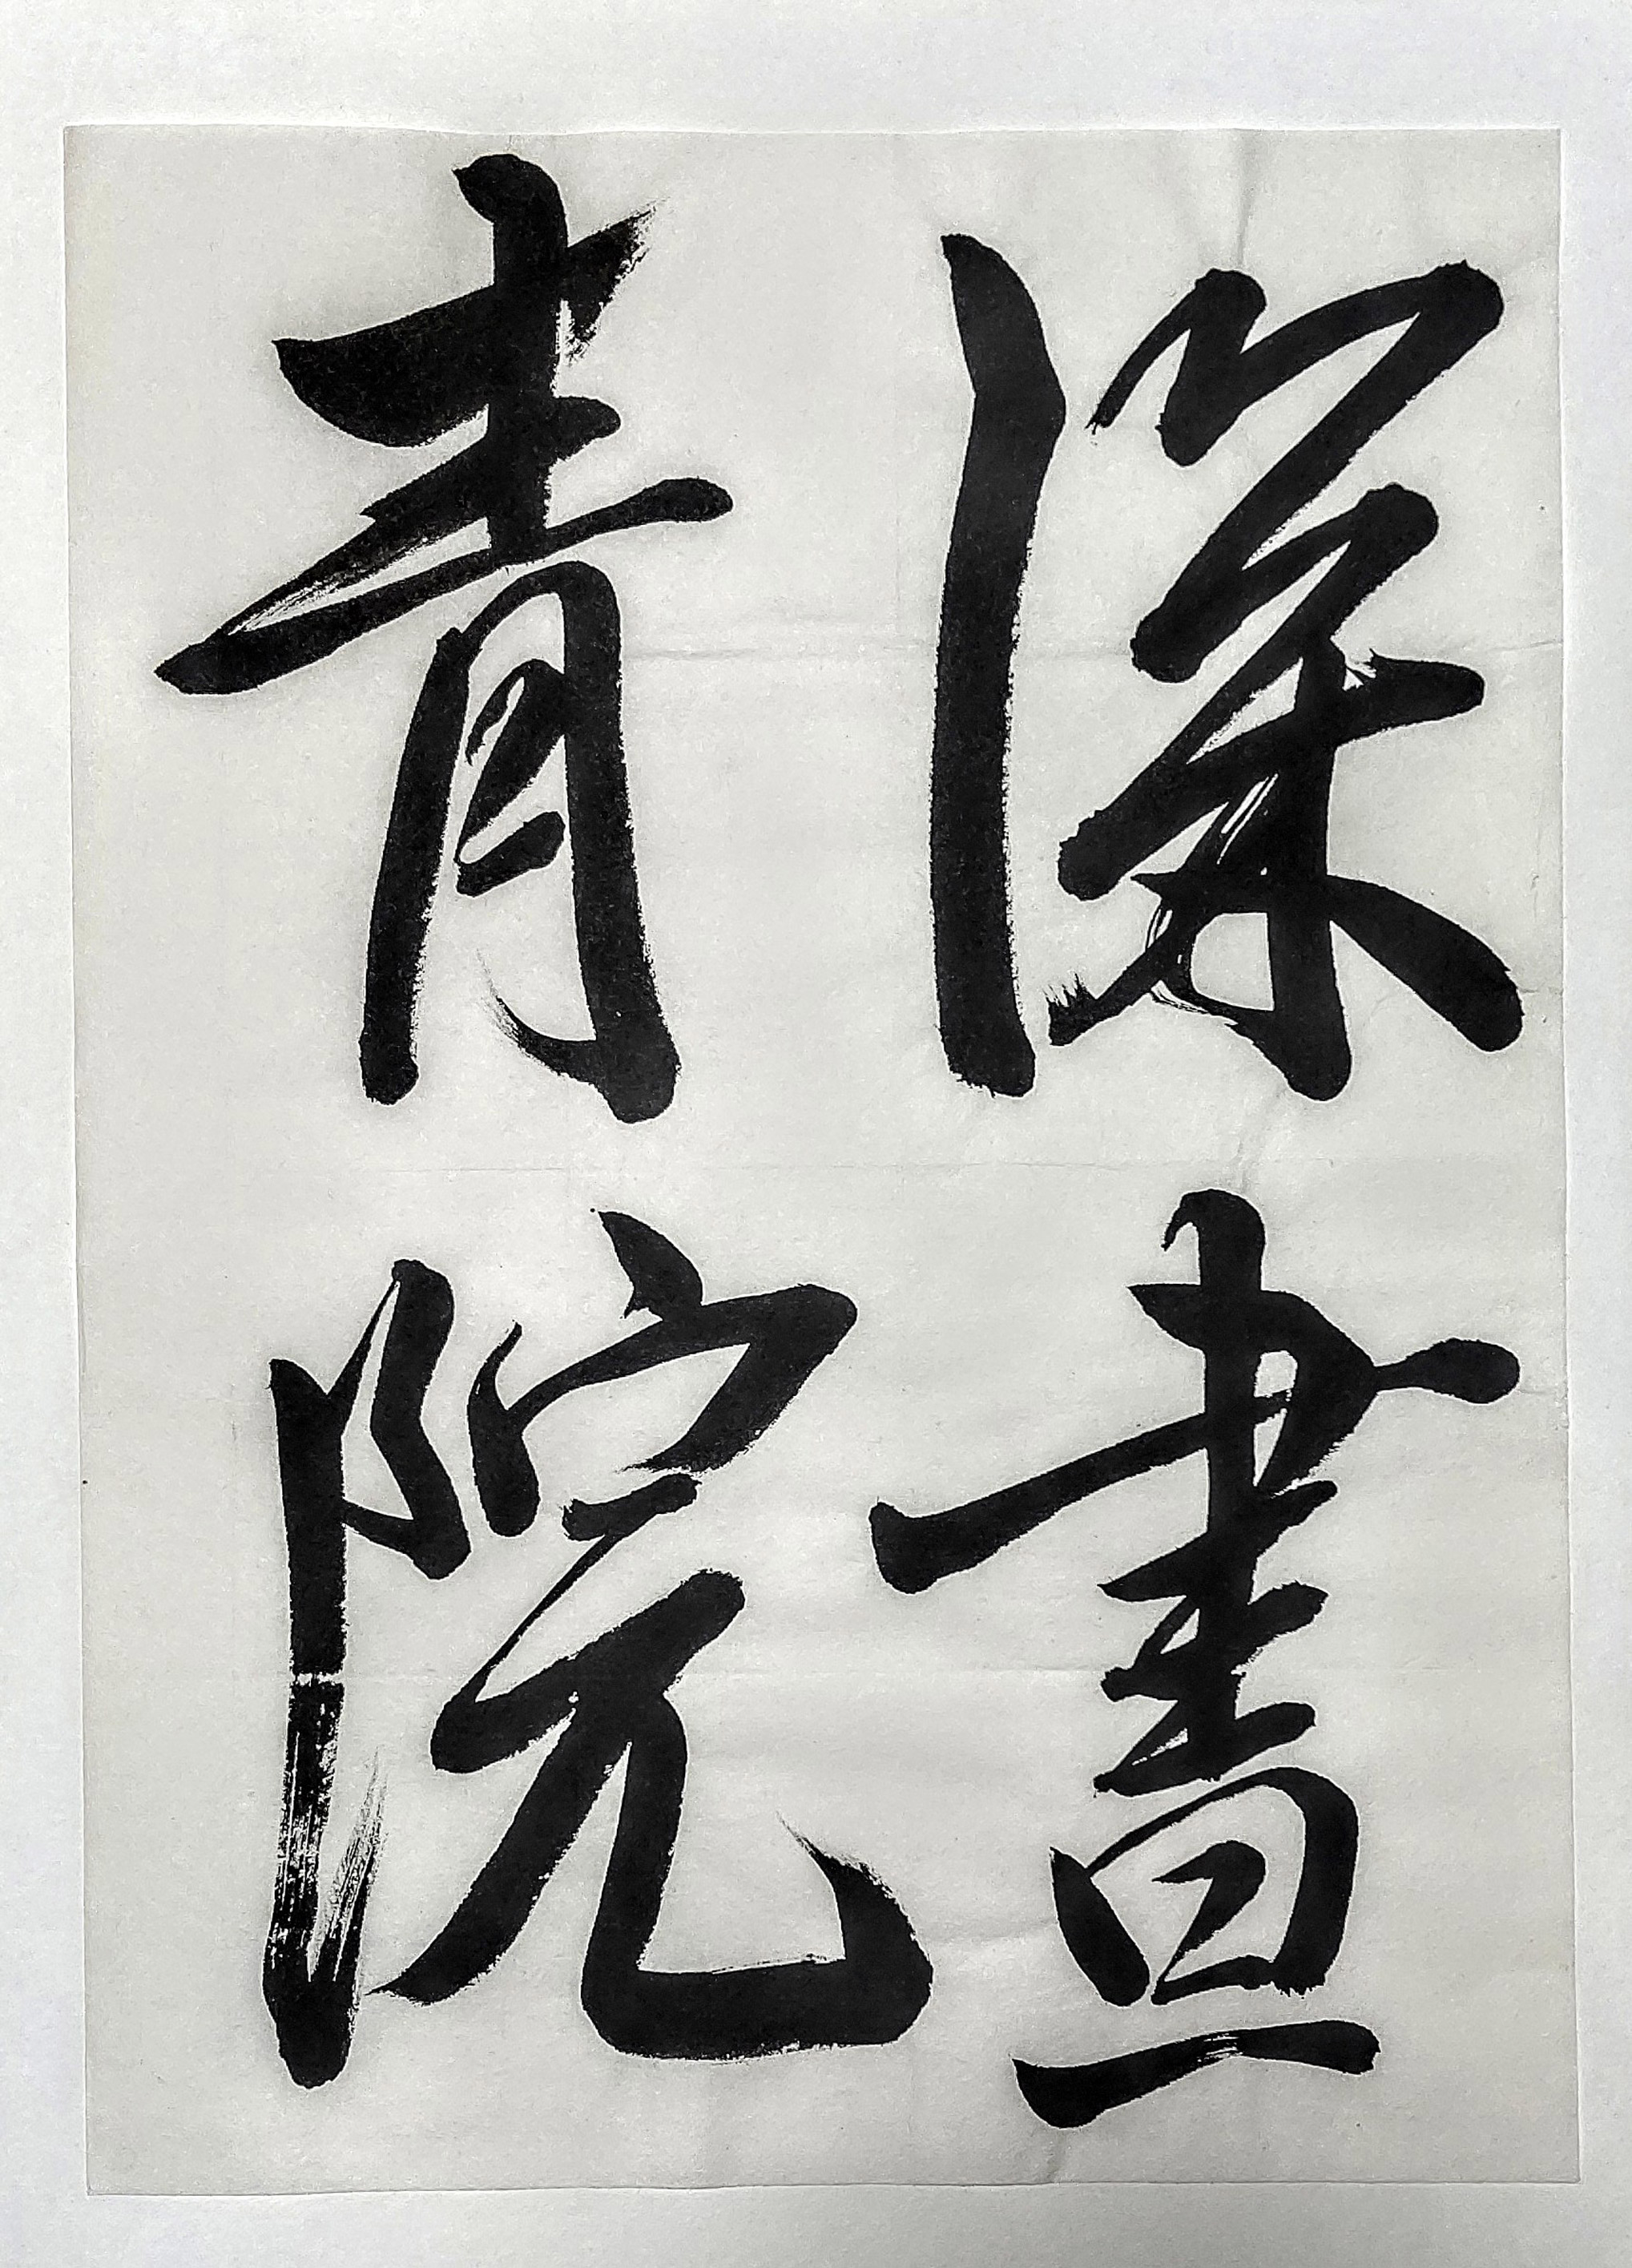 深畫
青院